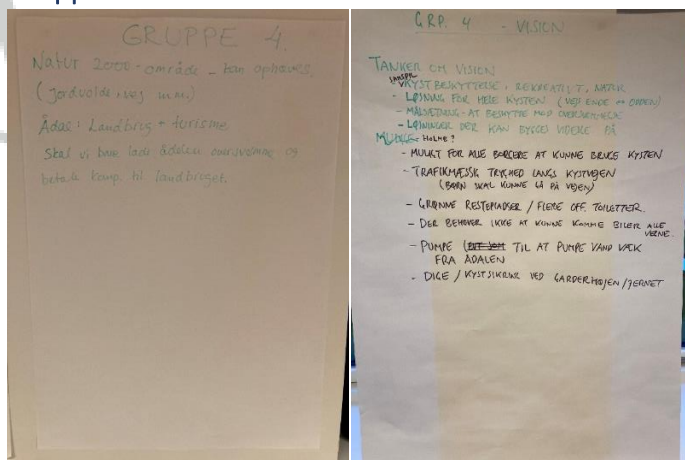 GRUPPE 4.
Natur 2000-område - kan ophæves,
(jordvolde, vej m.m.)
Ådal: Landbrug + turisme.
Skal vi bare lade ådalen oversvømme og
betale komp. til landbruget.
GRP. 4 - VISION
TANKER OM VISION
KYSTBESKYTTELSE, REKREATIVT, NATUR
- LØSNING FOR HELE KYSTEN (VEJS ENDE
- MÅLSÆTNING - AT BESKYTTE MOD OVERSVØMMELSE
- LØSNINGER DER KAN BYGGES VIDERE PÅ
HOLME?
- MULIGT FOR ALLE BORGERE AT KUNNE BRUGE KYSTEN
- TRAFIKMÆSSIG TRYGHED LANGS KYSTVEJEN
(BØRN SKAL KUNNE GÅ PÅ VEJEN)
- GRØNNE RASTEPLADSER / FLERE OFF. TOILETTER.
- DER BEHØVER IKKE AT KUNNE KOMME BILER ALLE
VEGNE.
- PUMPE TIL AT PUMPE VAND VÆK
FRA ÅDALEN
- DIGE / KYSTSIKRING VED GARDERHØJEN / JERNET